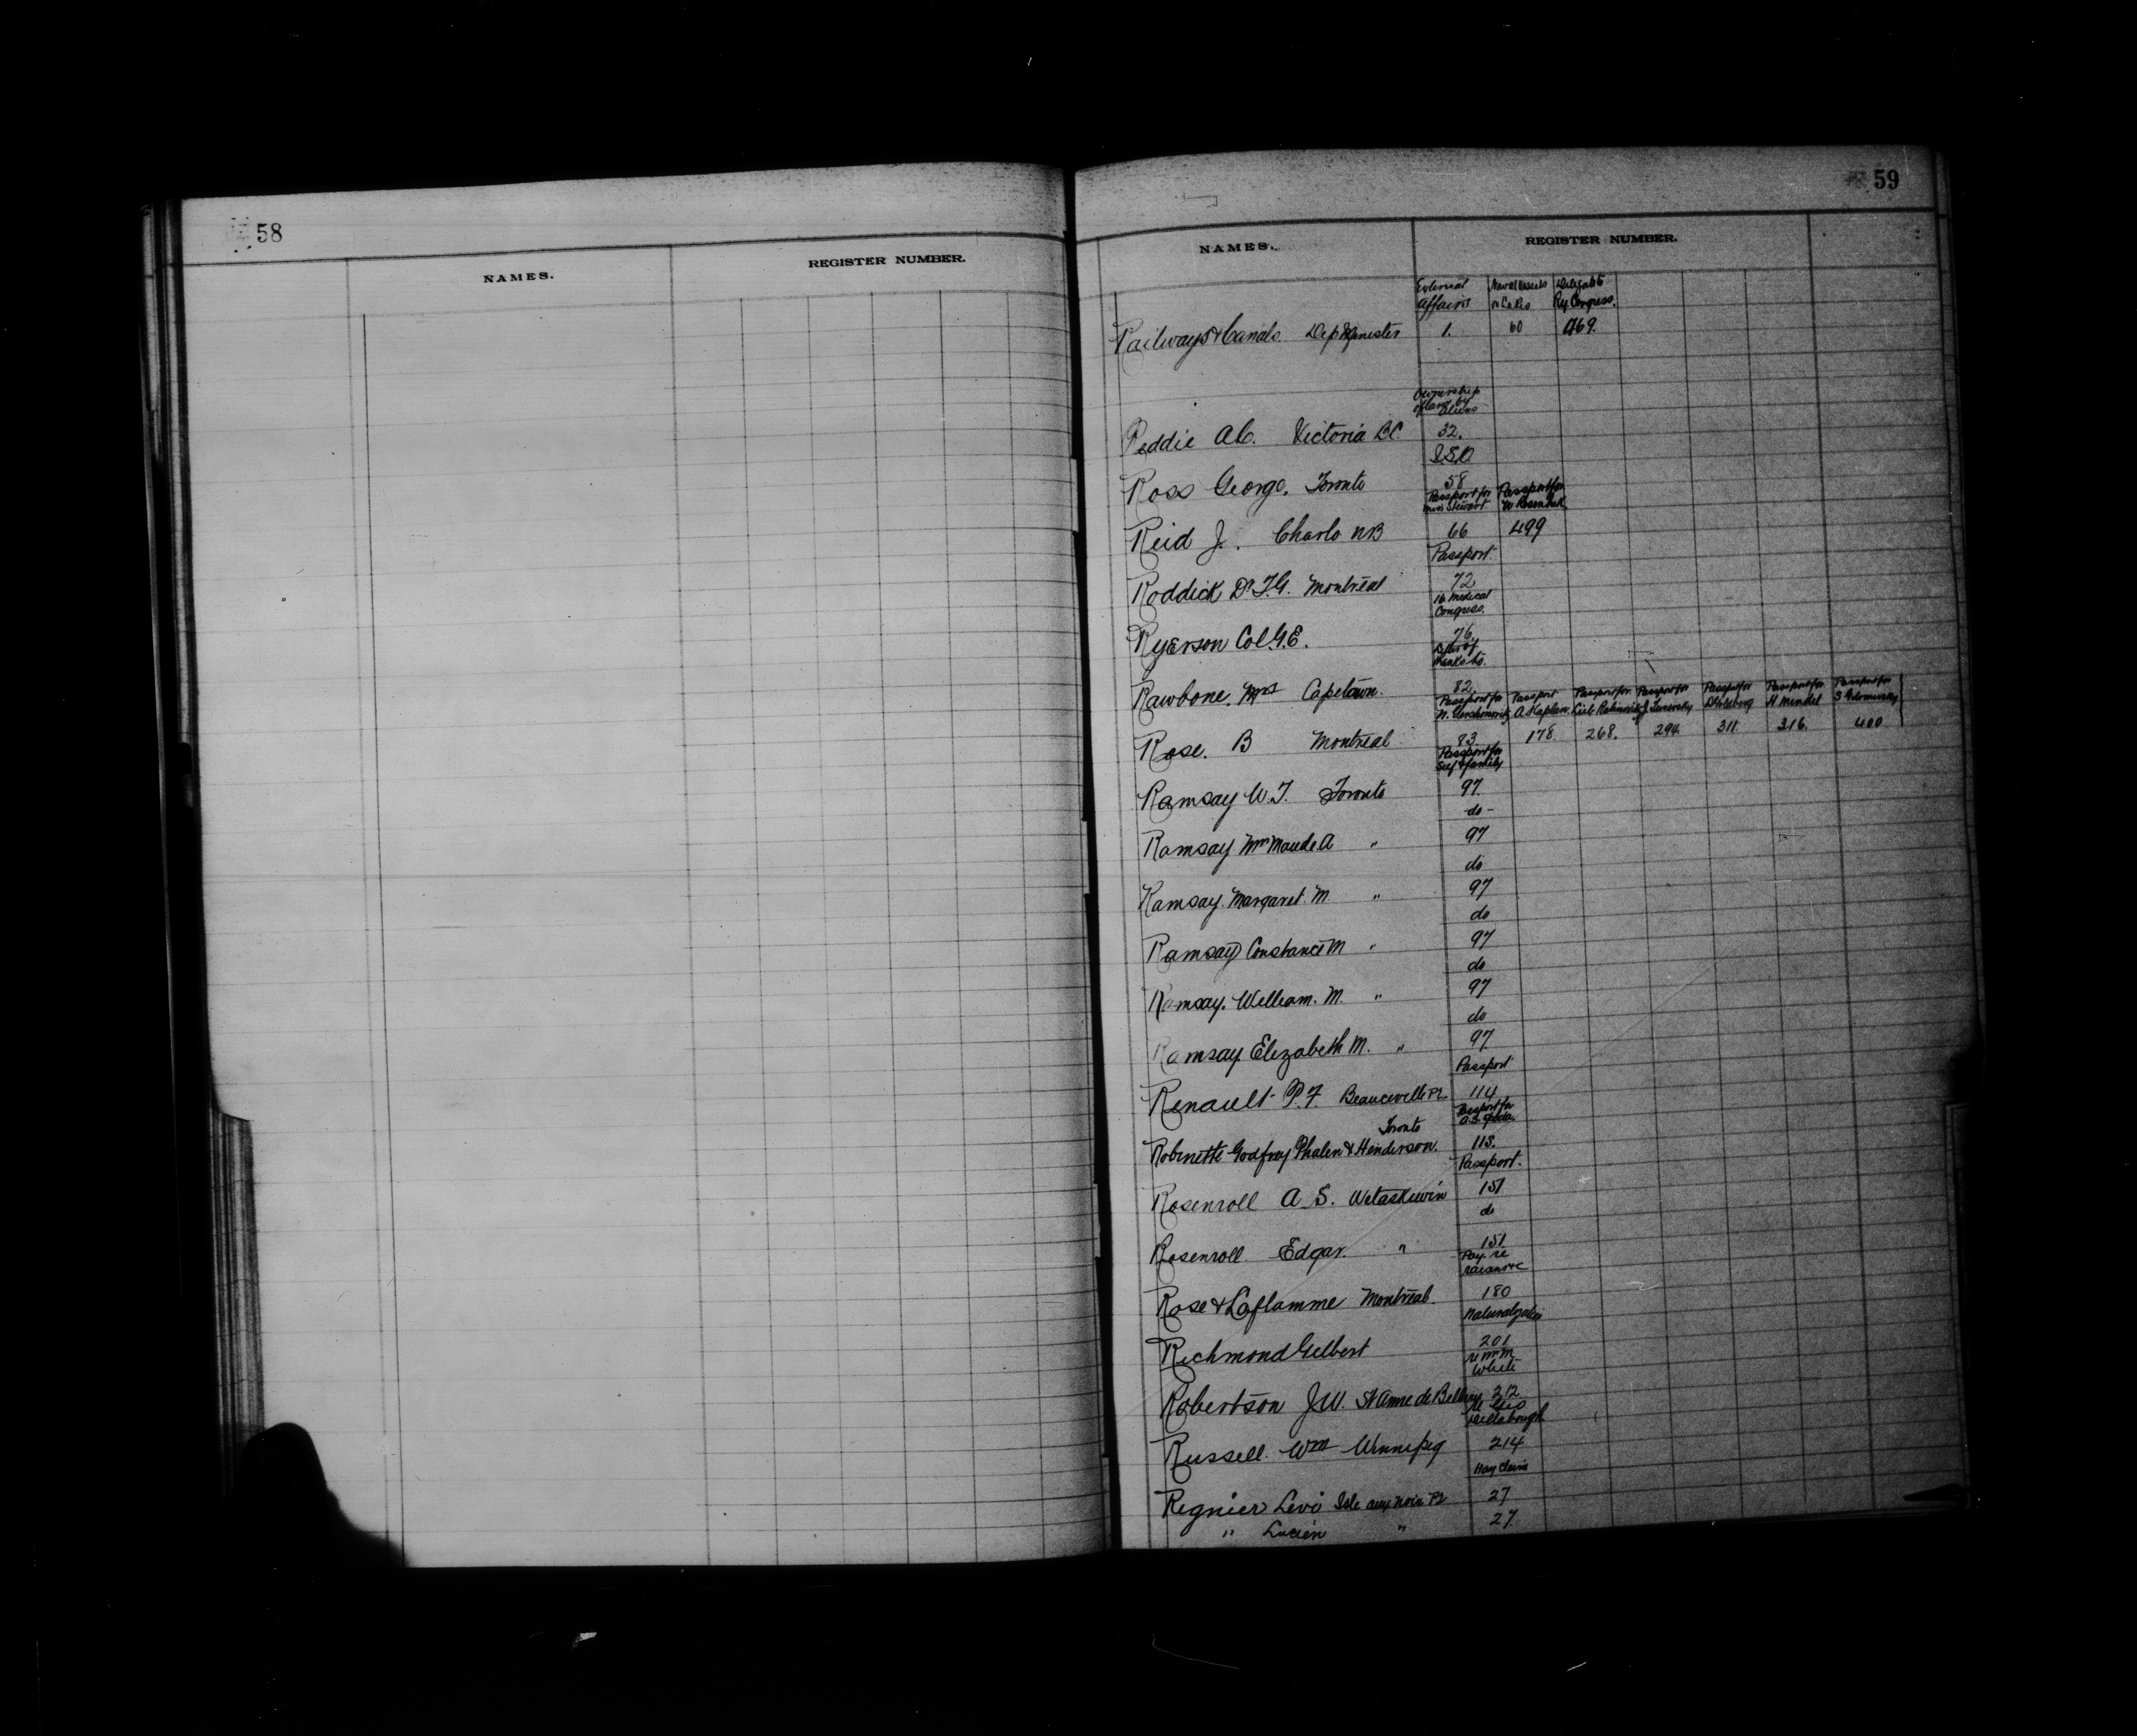 58
NAMES.
REGISTER NUMBER.
59
NAMES.
REGISTER NUMBER.
External Naval Vessels Delegate to
Affairs on Lakes Ry Congress.
Railways & Canals. Dep Minister 1. 60 469.
Ownership
of land by
Aliens
Reddie A.C. Victoria BC. 32.
I.S.O
Ross George. Toronto 58
Passport for Passport for
Miss Stewart W
Reid J. Charlo NB 66 499
Passport.
Roddick Dr T.G. Montreal 72
16 Medical
Congress.
Ryerson Col G.E. 76.
Letter of
thanks to.
Rawbone. Mrs Capetown. 82.
Passport for Passport Passport for Passport for Passport for Passport for Passport for
N. Gershonovitz A. Kaplan. Leib Rabinovitz J. D. H Mendel S
Rose. B Montreal 83 178. 268. 294. 311. 316. 400
Passport for
Self & family
Ramsay W.T. Toronto 97.
do -
Ramsay Mrs Maude A " 97
do
Ramsay. Margaret. M " 97
do
Ramsay Constance M " 97
do
Ramsay. William. M. " 97
do
Ramsay Elizabeth M. " 97
Passport
Renault P.F. Beauceville P.Q. 114
Passport for
A.S.
Toronto
Robinette Godfrey Phalen & Henderson. 115.
Passport.
Rosenroll A.S. Wetaskiwin 151
do
Rosenroll Edgar. " 151.
Pay. re
Rose & Laflamme Montreal. 180
Naturalization
Richmond Gilbert 201
re Mr M
White
Robertson J.W. St Anne de Bellevue 212
re Geo
Russell. Wm Winnipeg 214
Hay Claim
Regnier Levi Isle aux Noix P.Q. 27
" Lucien " 27